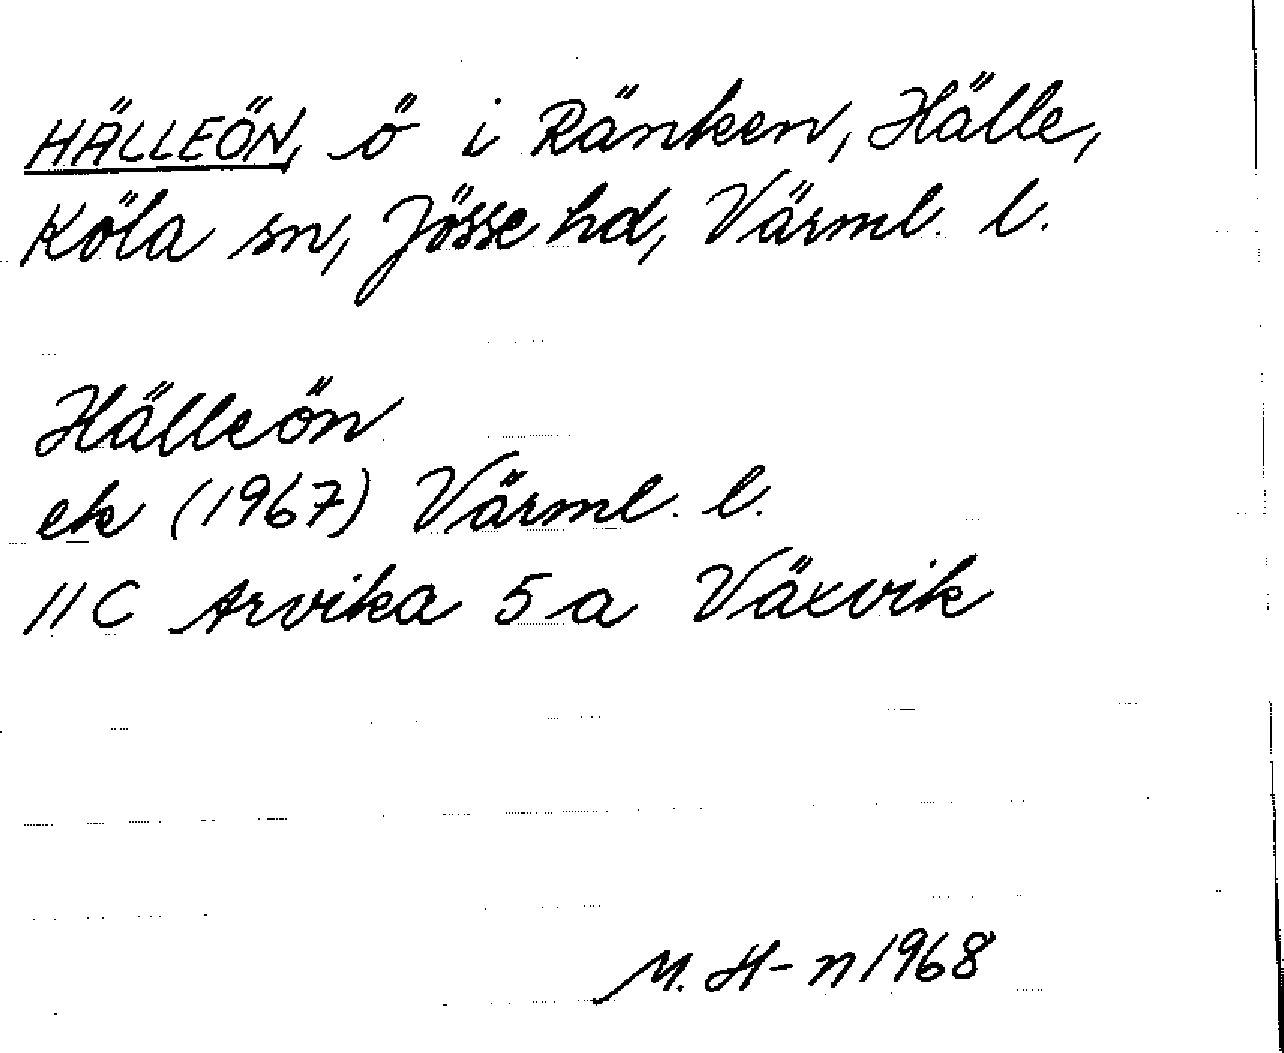 HÄLLEÖN, ö i Ränken, Hälle,
Köla sn, Jösse hd, Värml. l.
Hälleön
ek (1967) Värml. l.
11 C Arvika 5 a Växvik
M. H-n 1968